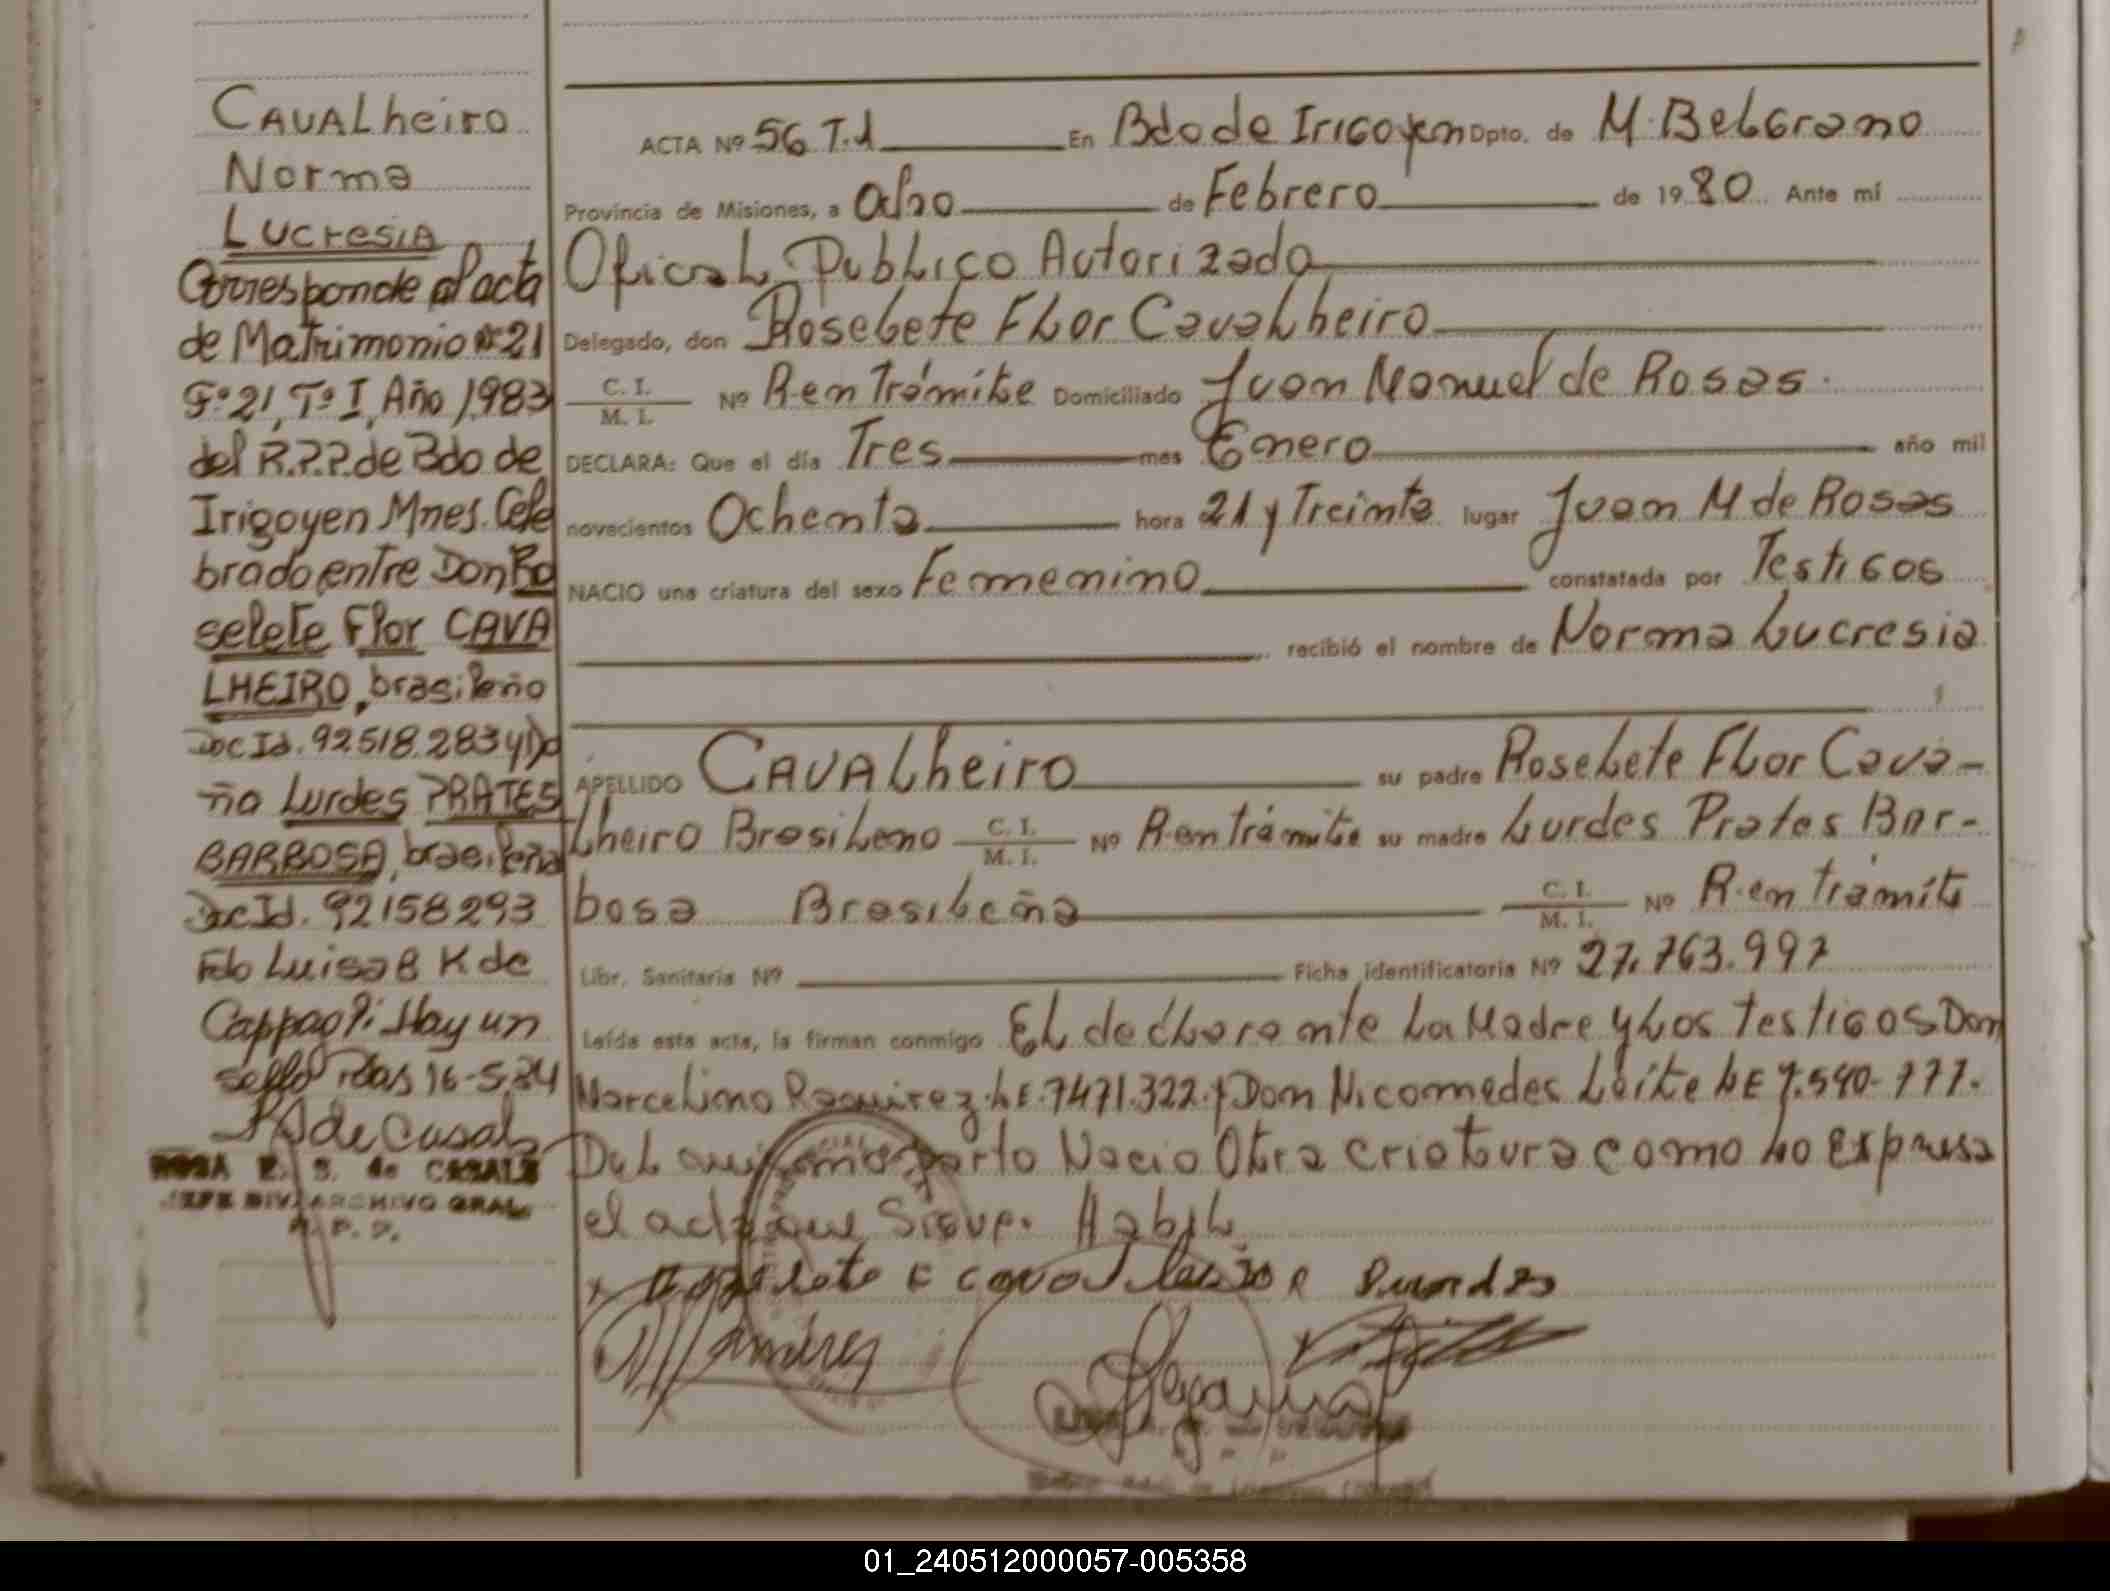 CAVALheiro
Norma
Lucresia
Corresponde al acta
de Matrimonio nº 21
Fº 21, Tº I, Año 1983
del R.P.P. de Bdo de
Irigoyen Mnes. Cele
brado, entre Don Ro
selete Flor CAVA
LHEIRO, brasileño
Doc Id. 92518.283 y Do
ña Lurdes PRATES
BARBOSA, brasileña
Doc Id. 92158293
Fdo Luisa B K de
Cappaoli. Hay un
sello Pdas 16-5-84
de Casals
ROSA E. S. de CASALS
JEFE DIV. ARCHIVO GRAL.
R. P. P.
ACTA Nº 56 T.1 En Bdo de Irigoyen Dpto. de M. Belgrano
Provincia de Misiones, a ocho de Febrero de 1980. Ante mí
Oficial Publico Autorizado
Delegado, don Roselete Flor Cavalheiro
C. I. / M. I. Nº R-en Trámite Domiciliado Juan Manuel de Rosas.
DECLARA: Que el día Tres mes Enero año mil
novecientos Ochenta hora 21 y Treinta lugar Juan M de Rosas
NACIO una criatura del sexo Femenino constatada por Testigos
recibió el nombre de Norma Lucresia
APELLIDO CAVALheiro su padre Roselete Flor Cava-
lheiro Brasileno C. I. / M. I. Nº R-en trámite su madre Lurdes Prates Bar-
bosa Brasileña C. I. / M. I. Nº R-en trámite
Libr. Sanitaria Nº Ficha identificatoria Nº 27.763.997
Leída esta acta, la firman conmigo El declarante La Madre y Los Testigos Don
Marcelino Ramirez. LE. 7471.322. y Don Nicomedes Leite LE 7.540-777.
Del mismo Parto Nacio Otra criatura como lo expresa
el acta que Sigue. Habil.